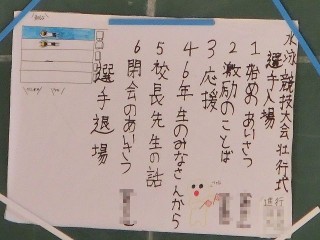 水泳競技大会壮行式
選手入場
1 始めのあいさつ
2 激励のことば
3 応援
4 6年生のみなさんから
5 校長先生の話
6 閉会のあいさつ
選手退場
進行